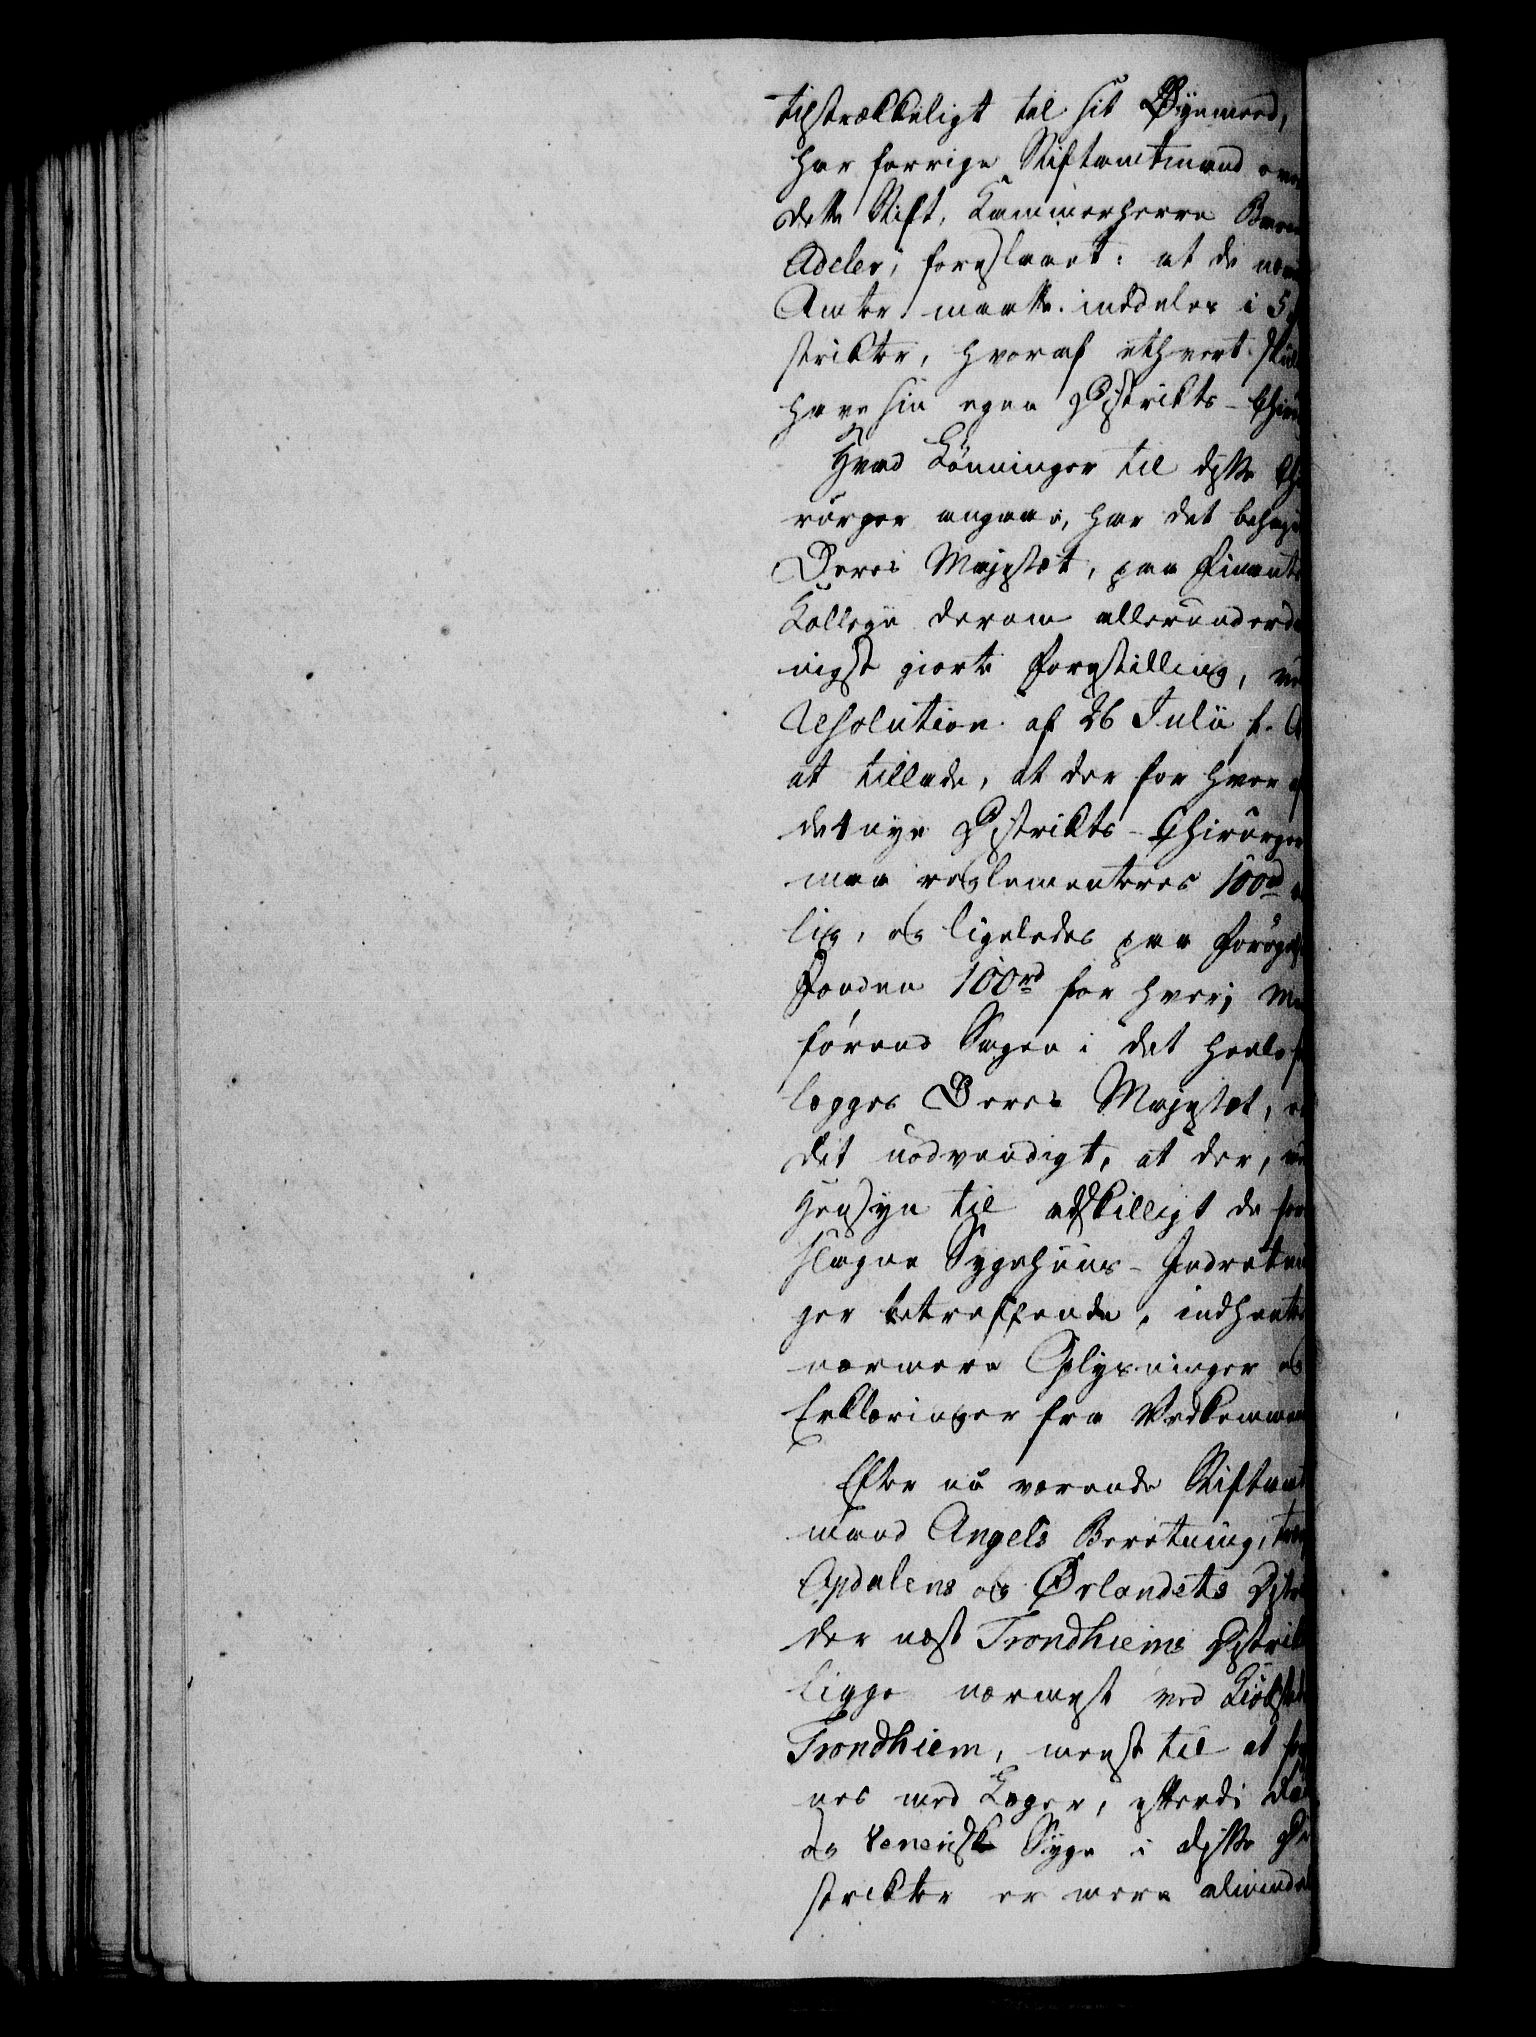 tilstrækkeligt til sit Øyemeed,
har forrige Stiftamtmand over
dette Stift, Kammerherre Baron
Adeler, foreslaaet: at de
Amter maatte inddeles i 5
strikter, hvoraf ethvert skul
have sin egen Distrikts-Chir
Hvad Lønninger til disse Chi
rurger angaaer, har det behag
Deres Majestæt, paa Finants
Kollegii derom allerunderd
nigst giorte Forestilling, ved
Resolution af 26 Julii f. A
at tillade, at der for hver af
de 4 nye Distrikts-Chirurger
maa reglementeres 100 rd
lig, og ligeledes paa Forøgels
Fonden 100 rd for hver; Men
førend Sagen i det heele f
lægges Deres Majestæt, er
det nødvendigt, at der, med
Hensyn til adskilligt de fore
slagne Sygehuus-Indretnin
ger betreffende, indhentes
nærmere Oplysninger og
Erklæringer fra Vedkommen
Efter nu værende Stiftamt
mand Angels Beretning, træn
Opdalens og Ørlandets Distri
der næst Trondhiems Distrikt
ligge nærmest ved Kiøbsted
Trondhiem, meest til at for
nes med Læger, efterdi Rad
og Venerisk Syge i disse Di
strikter er mere almindel